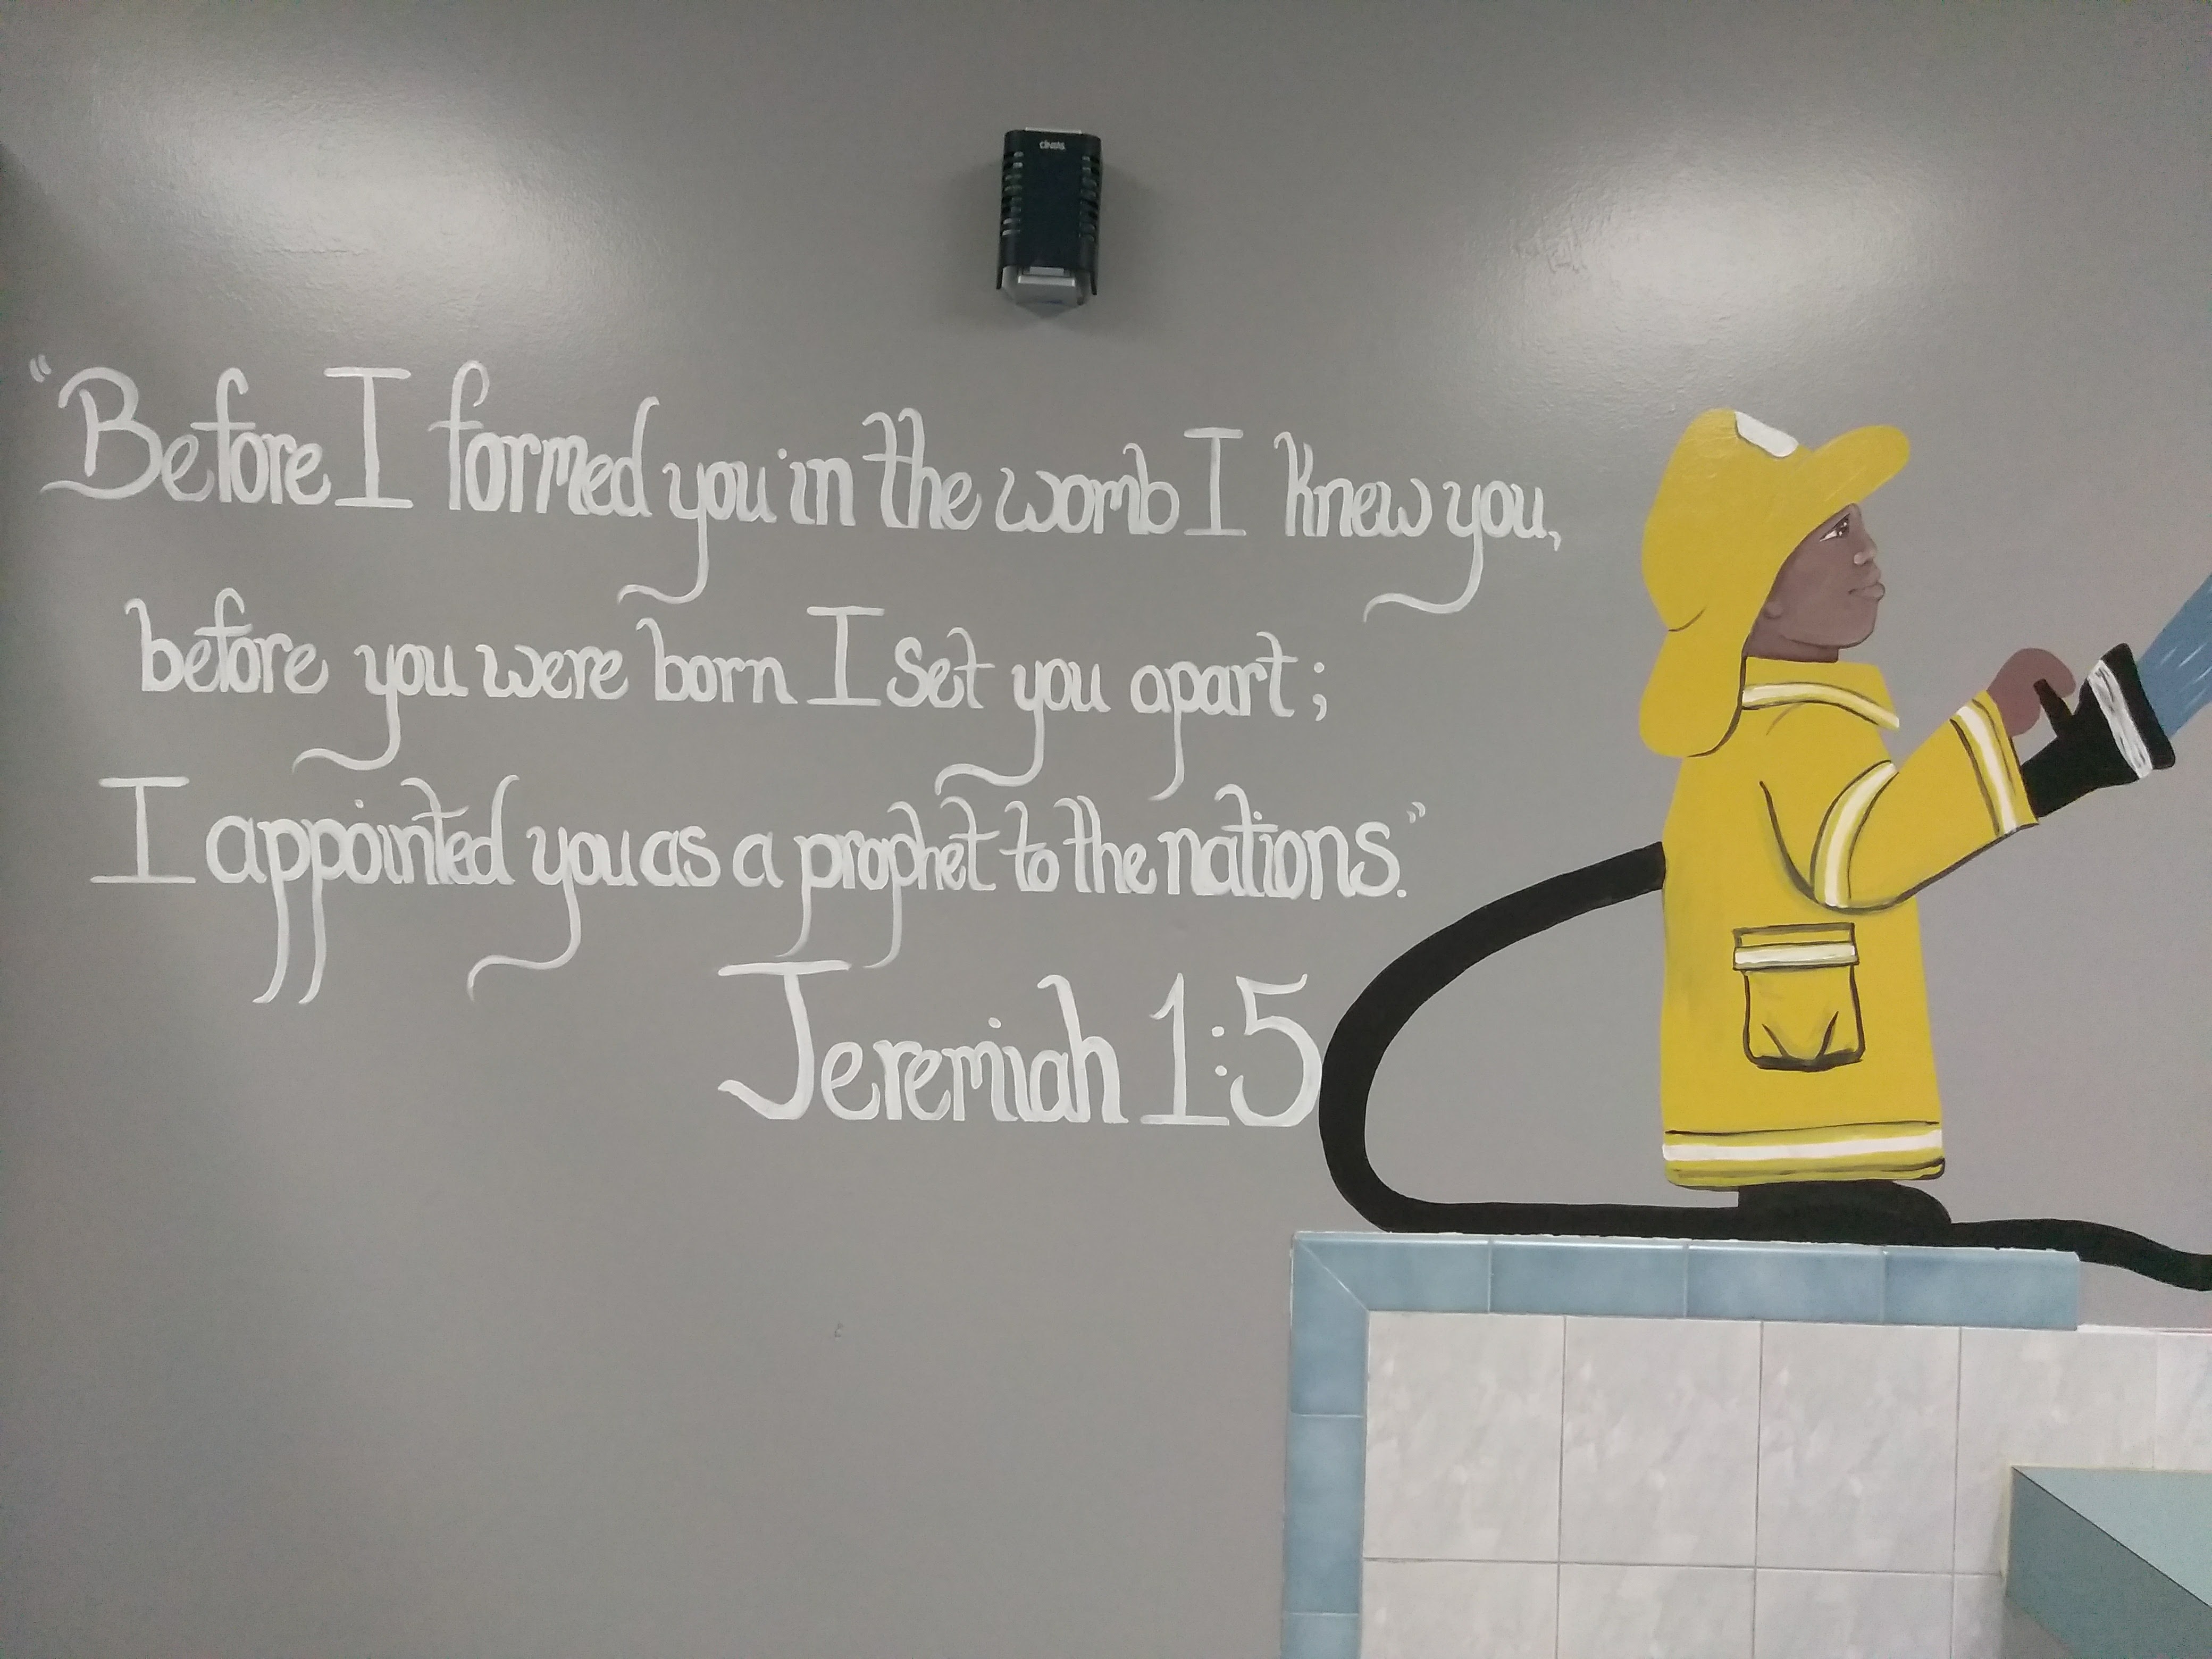 "Before I formed you in the womb I knew you,
before you were born I set you apart;
I appointed you as a prophet to the nations."
Jeremiah 1:5